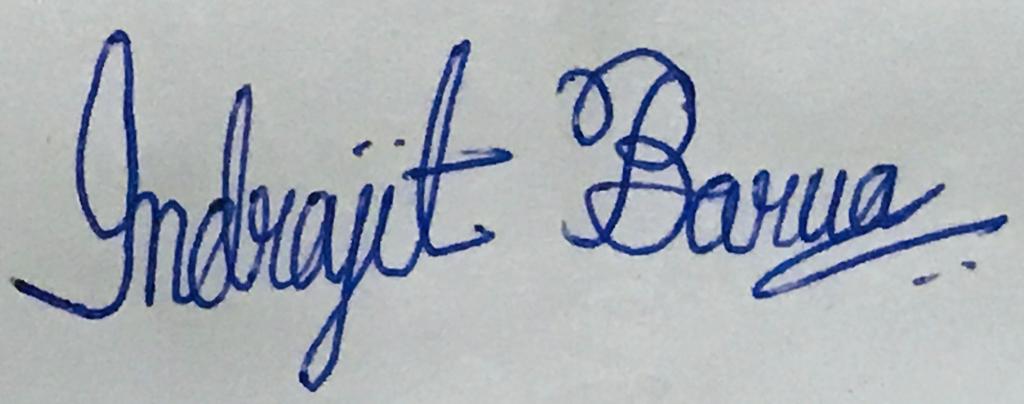 Indrajit Barua